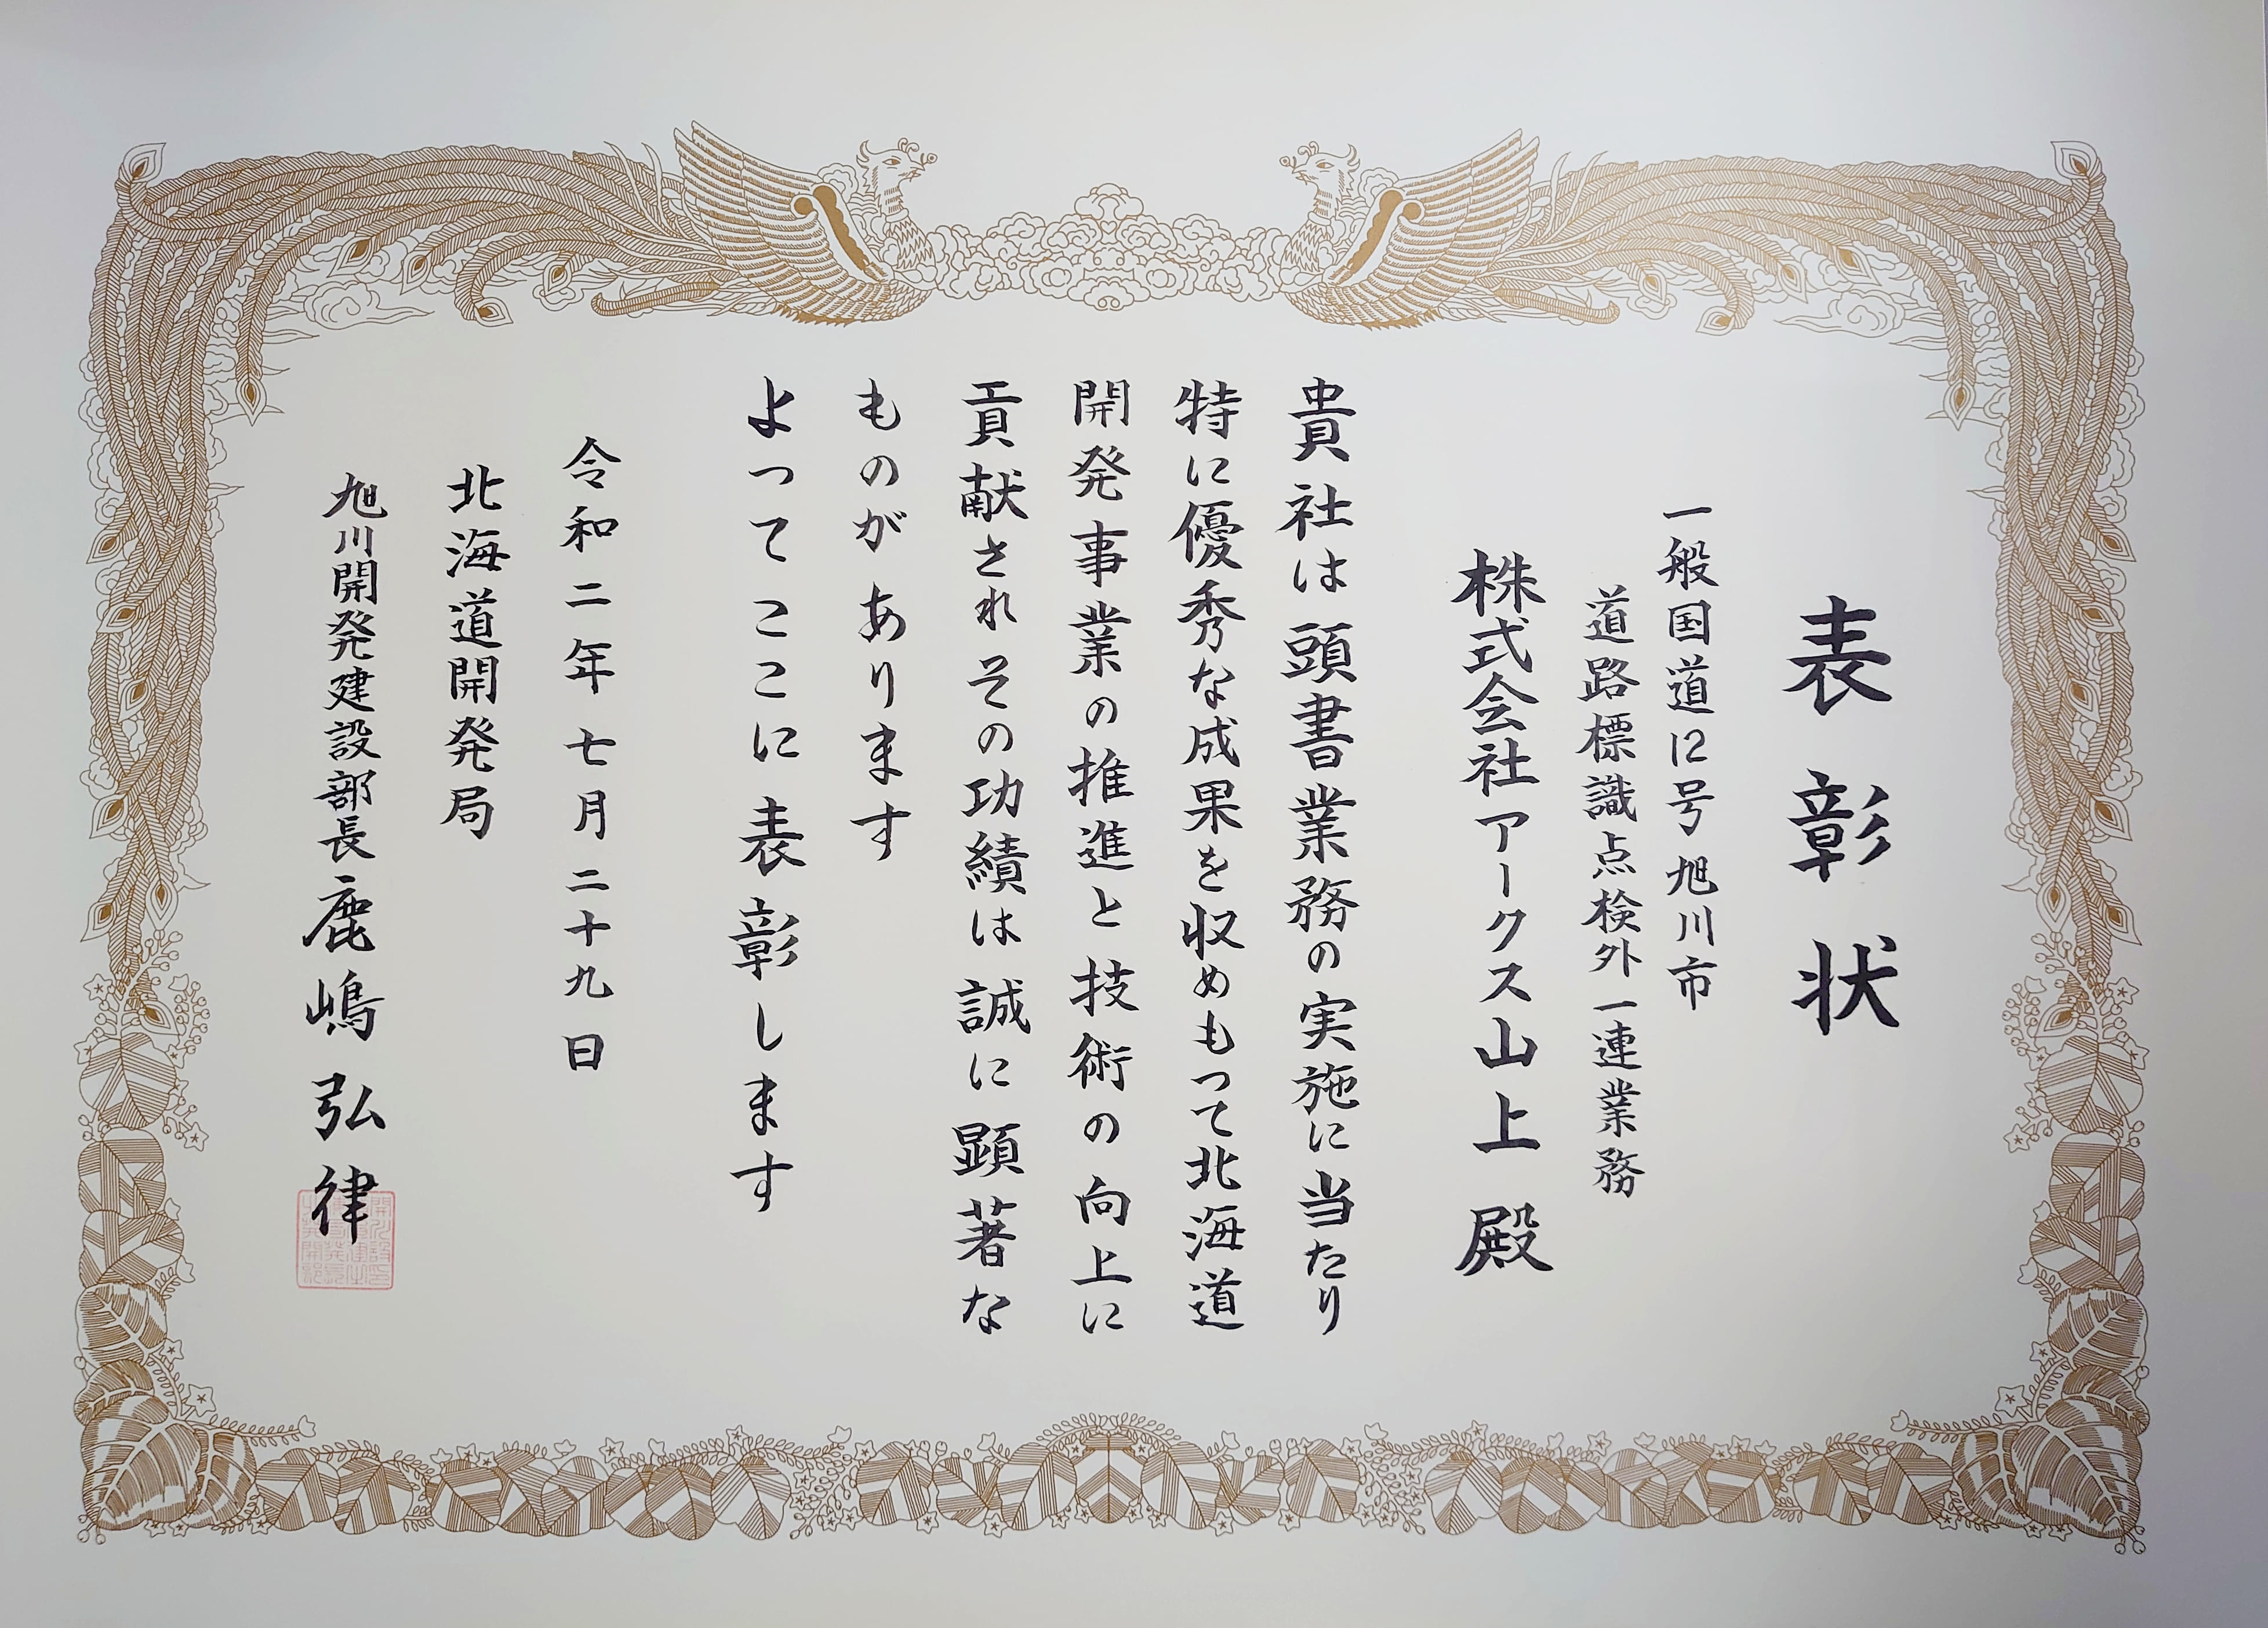 表彰状
一般国道12号旭川市
道路標識点検外一連業務
株式会社アークス山上 殿
貴社は頭書業務の実施に当たり
特に優秀な成果を収めもって北海道
開発事業の推進と技術の向上に
貢献されその功績は誠に顕著な
ものがあります
よってここに表彰します
令和二年七月二十九日
北海道開発局
旭川開発建設部長 鹿嶋弘律